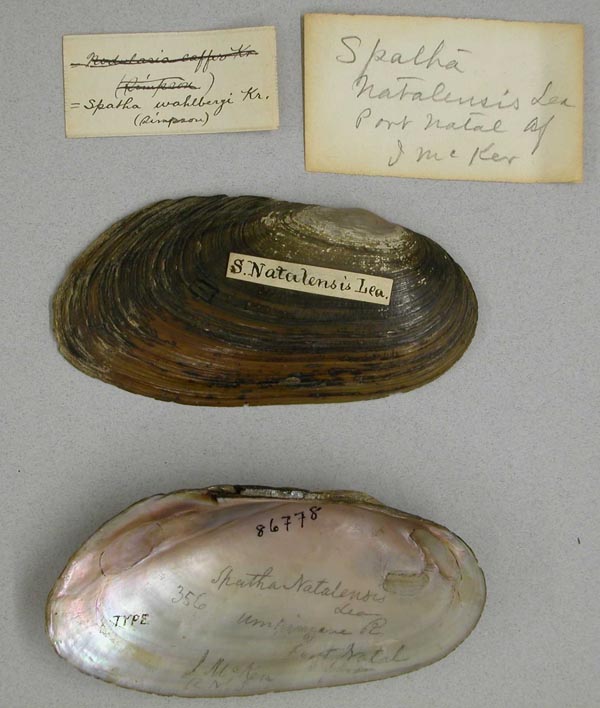 Nodularia caffra Kr.
(Simpson)
= Spatha wahlbergi Kr.
(Simpson)
Spatha
Natalensis Lea
Port Natal Af
J McKen
S. Natalensis Lea.
86778
Spatha Natalensis
356
Lea
TYPE
R
Port Natal